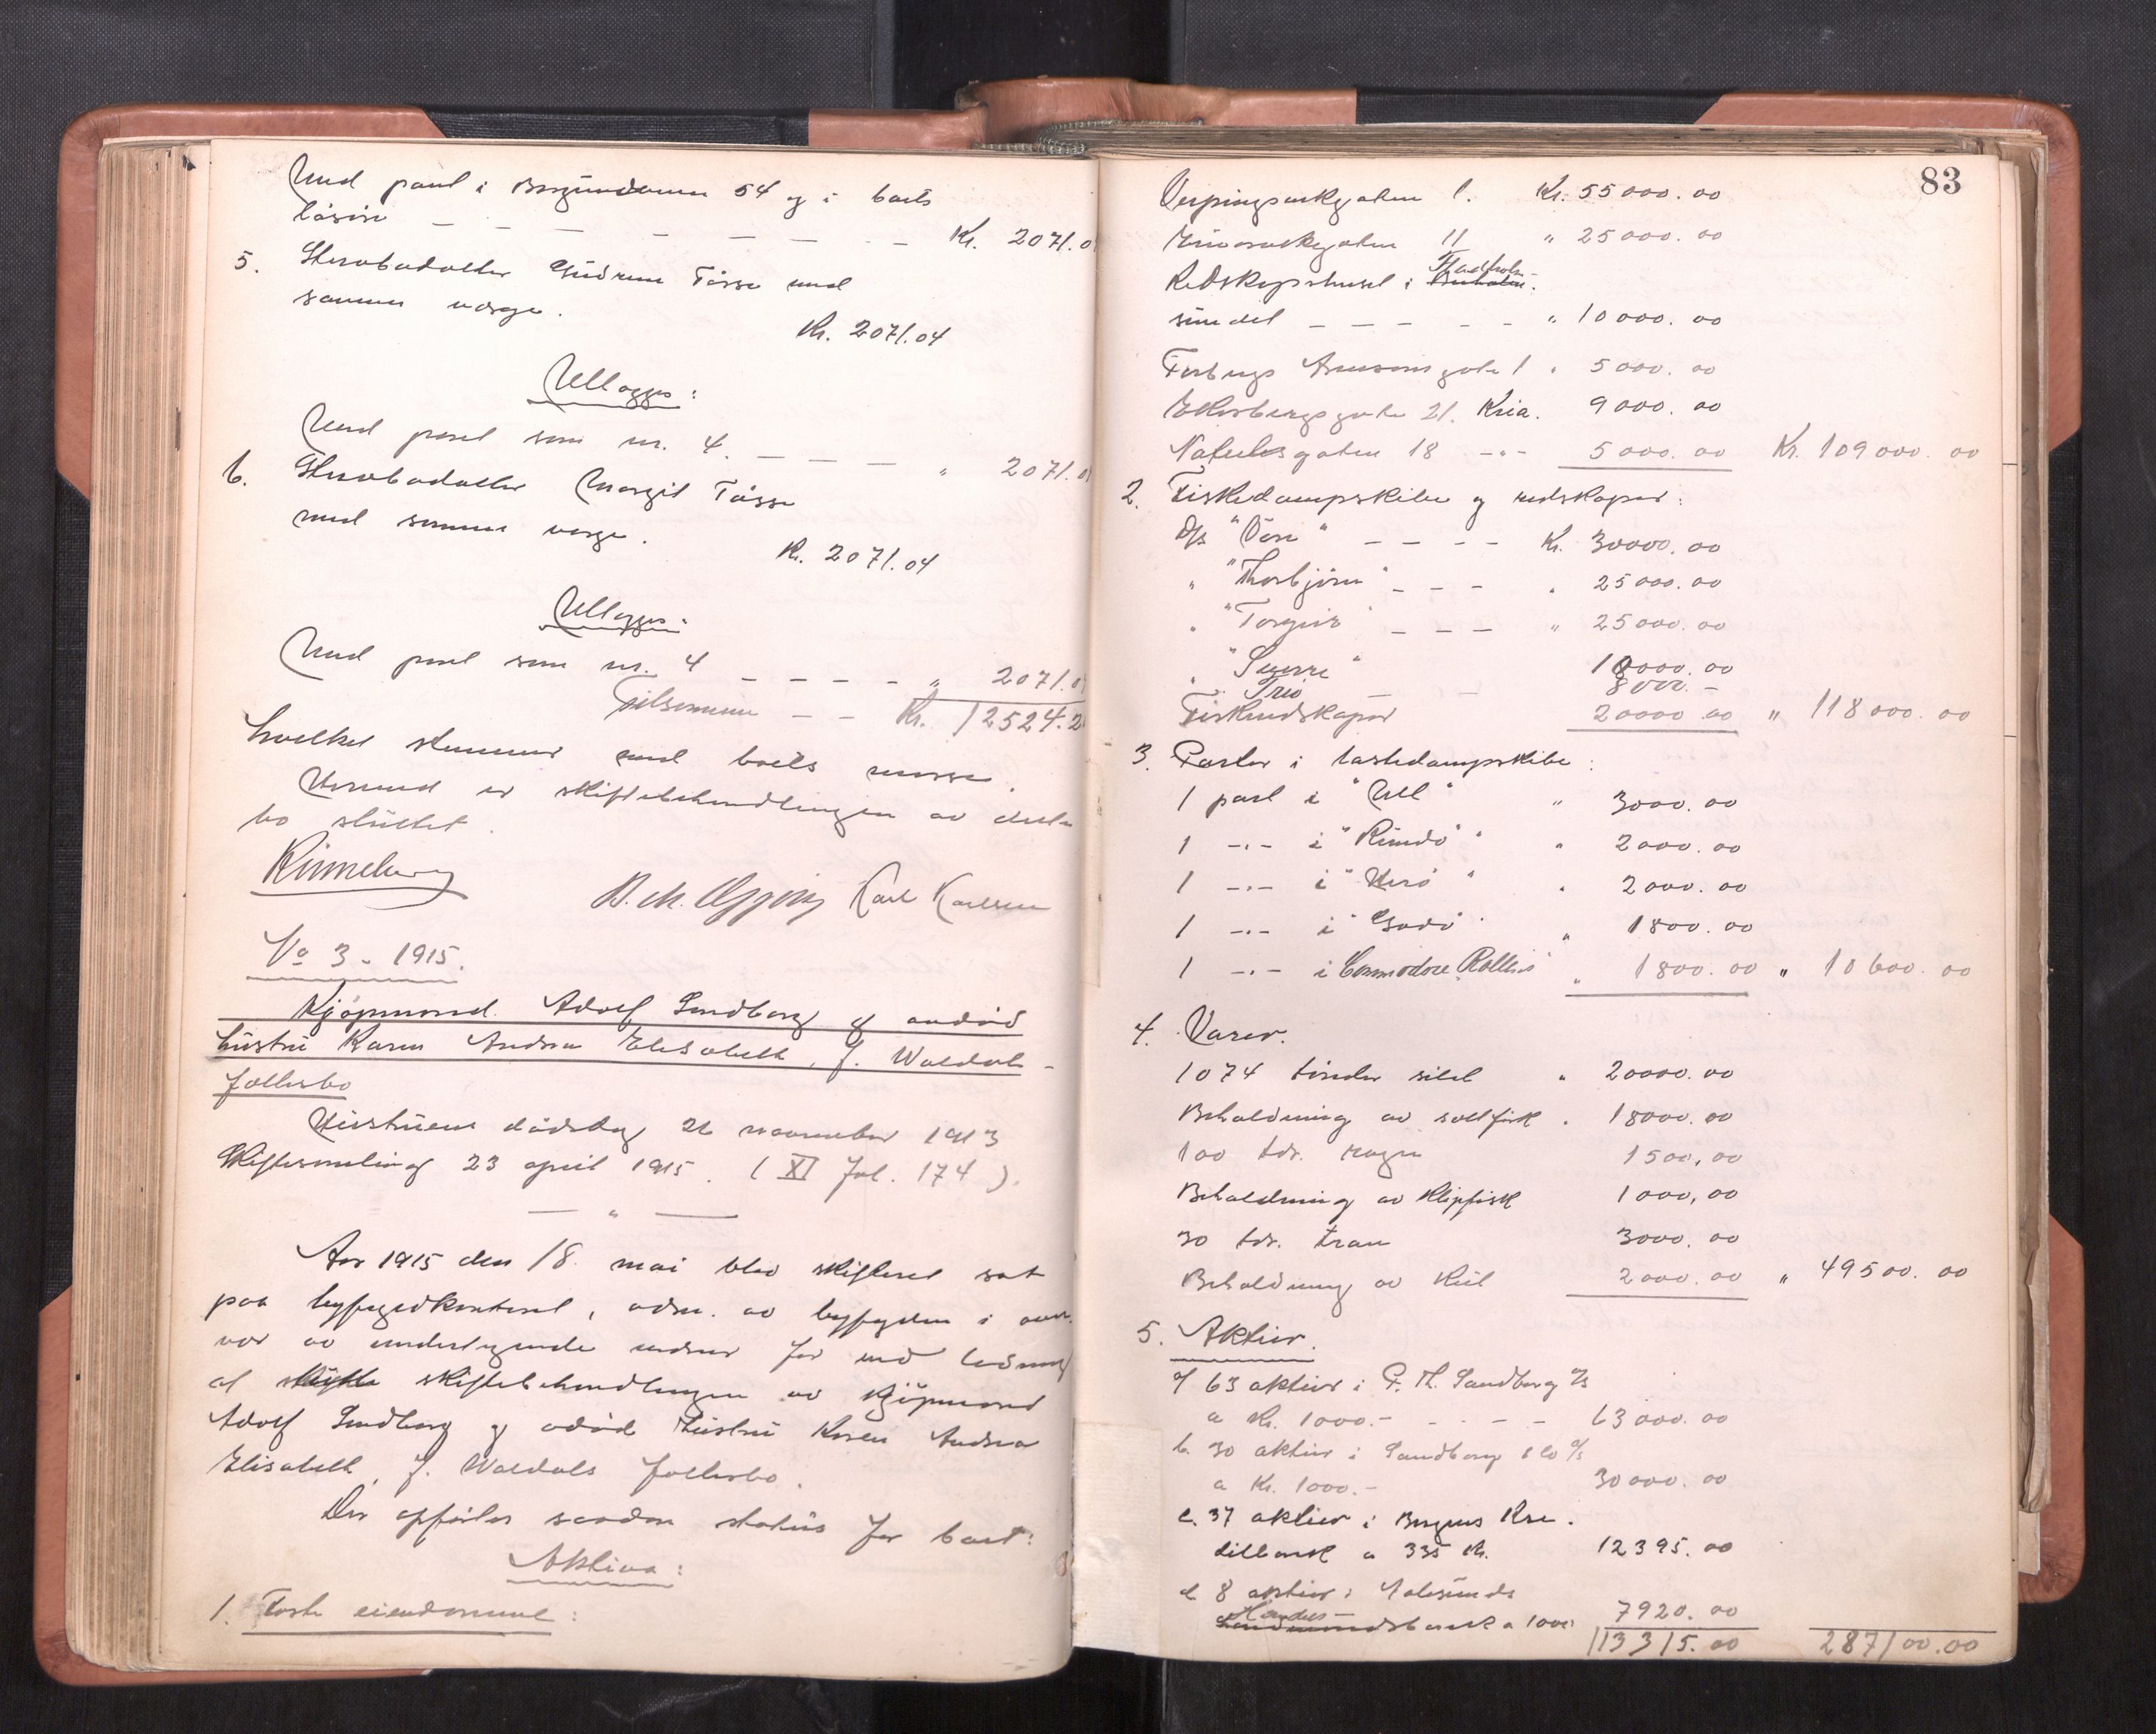 Med pant i 54 og i boets
løsøre — — — — — — — Kr. 2071.0
5. Stervbodatter Gudrun Tøsse med
samme verge.
Kr. 2071.04
Utlægges:
Med pant som nr. 4. — — — " 2071.0
6. Stervbodatter Margit Tøsse
med samme verge.
Kr. 2071.04
Utlægges:
Med pant som nr. 4 — — — — " 2071.0
Tilsammen — — Kr. 12524.2
hvilket stemmer med boets masse.
Hermed er skiftebehandlingen av dette
bo sluttet.
Rinneberg
Karl Karlsen
No 3 - 1915.
Kjøpmand Adolf Sandborg og avdød
hustru Karen Andrea Elisabeth, f. Waldals
fællesbo
Hustruens dødsdag 26 november 1913
Skiftesamling 23 april 1915. (XI fol. 174).
— " —
Aar 1915 den 18. mai blev skifteret sat
paa byfogedkontoret, adm. av byfogden i over-
vær av undertegnede vidner for ved
at slutte skiftebehandlingen av kjøpmand
Adolf Sandborg og avdød hustru Karen Andrea
Elisabeth, f. Waldals fællesbo.
Der opførtes saadan status for boet:
Aktiva:
1. Faste eiendomme:
83
gaten 1. Kr. 55000.00
gaten 11 " 25000.00
Redskapshuset i
sundet — — — — — " 10000.00
gate 1 " 5000.00
Ekersbergsgate 21. Kria. 9000.00
gaten 18 -"- 5000.00 Kr. 109000.00
2. Fiskedampskibe og redskaper:
D/s " " — — — — Kr. 30000.00
" "Thorbjørn" — — — " 25000.00
" "Torgeir" — — — " 25000.00
" "Sverre" 10000.00
" Trio — — 8000.-
Fiskeredskaper 20000.00 " 118000.00
3. Parter i lastedampskibe:
1 part i "Ull" " 3000.00
1 -"- i "Rundø" " 2000.00
1 -"- i " " " 2000.00
1 -"- i "Godø" " 1800.00
1 -"- i "Commodore Rollins" " 1800.00 " 10600.00
4. Varer.
1074 tønder sild " 20000.00
Beholdning av saltfisk " 18000.00
100 tdr. rogn 1500,00
Beholdning av klipfisk 1000,00
30 tdr. tran 3000.00
Beholdning av kul 2000.00 " 49500.00
5. Aktier.
a 63 aktier i P. Th. Sandborg A/s
a Kr. 1000.- - - - - 63000.00
b. 30 aktier i Sandborg & Co A/s
a Kr. 1000.- 30000.00
c. 37 aktier i Bergens Kre-
ditbank a 335 kr. 12395.00
d 8 aktier i Aalesunds
Handels-
bank a 1000 7920.00
113315.00 287100.00